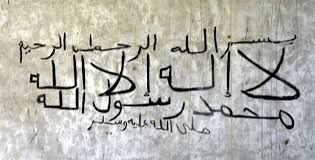 بسم الله الرحمن الرحيم
لا إله إلا الله
محمد رسول الله
صلى الله عليه وسلم